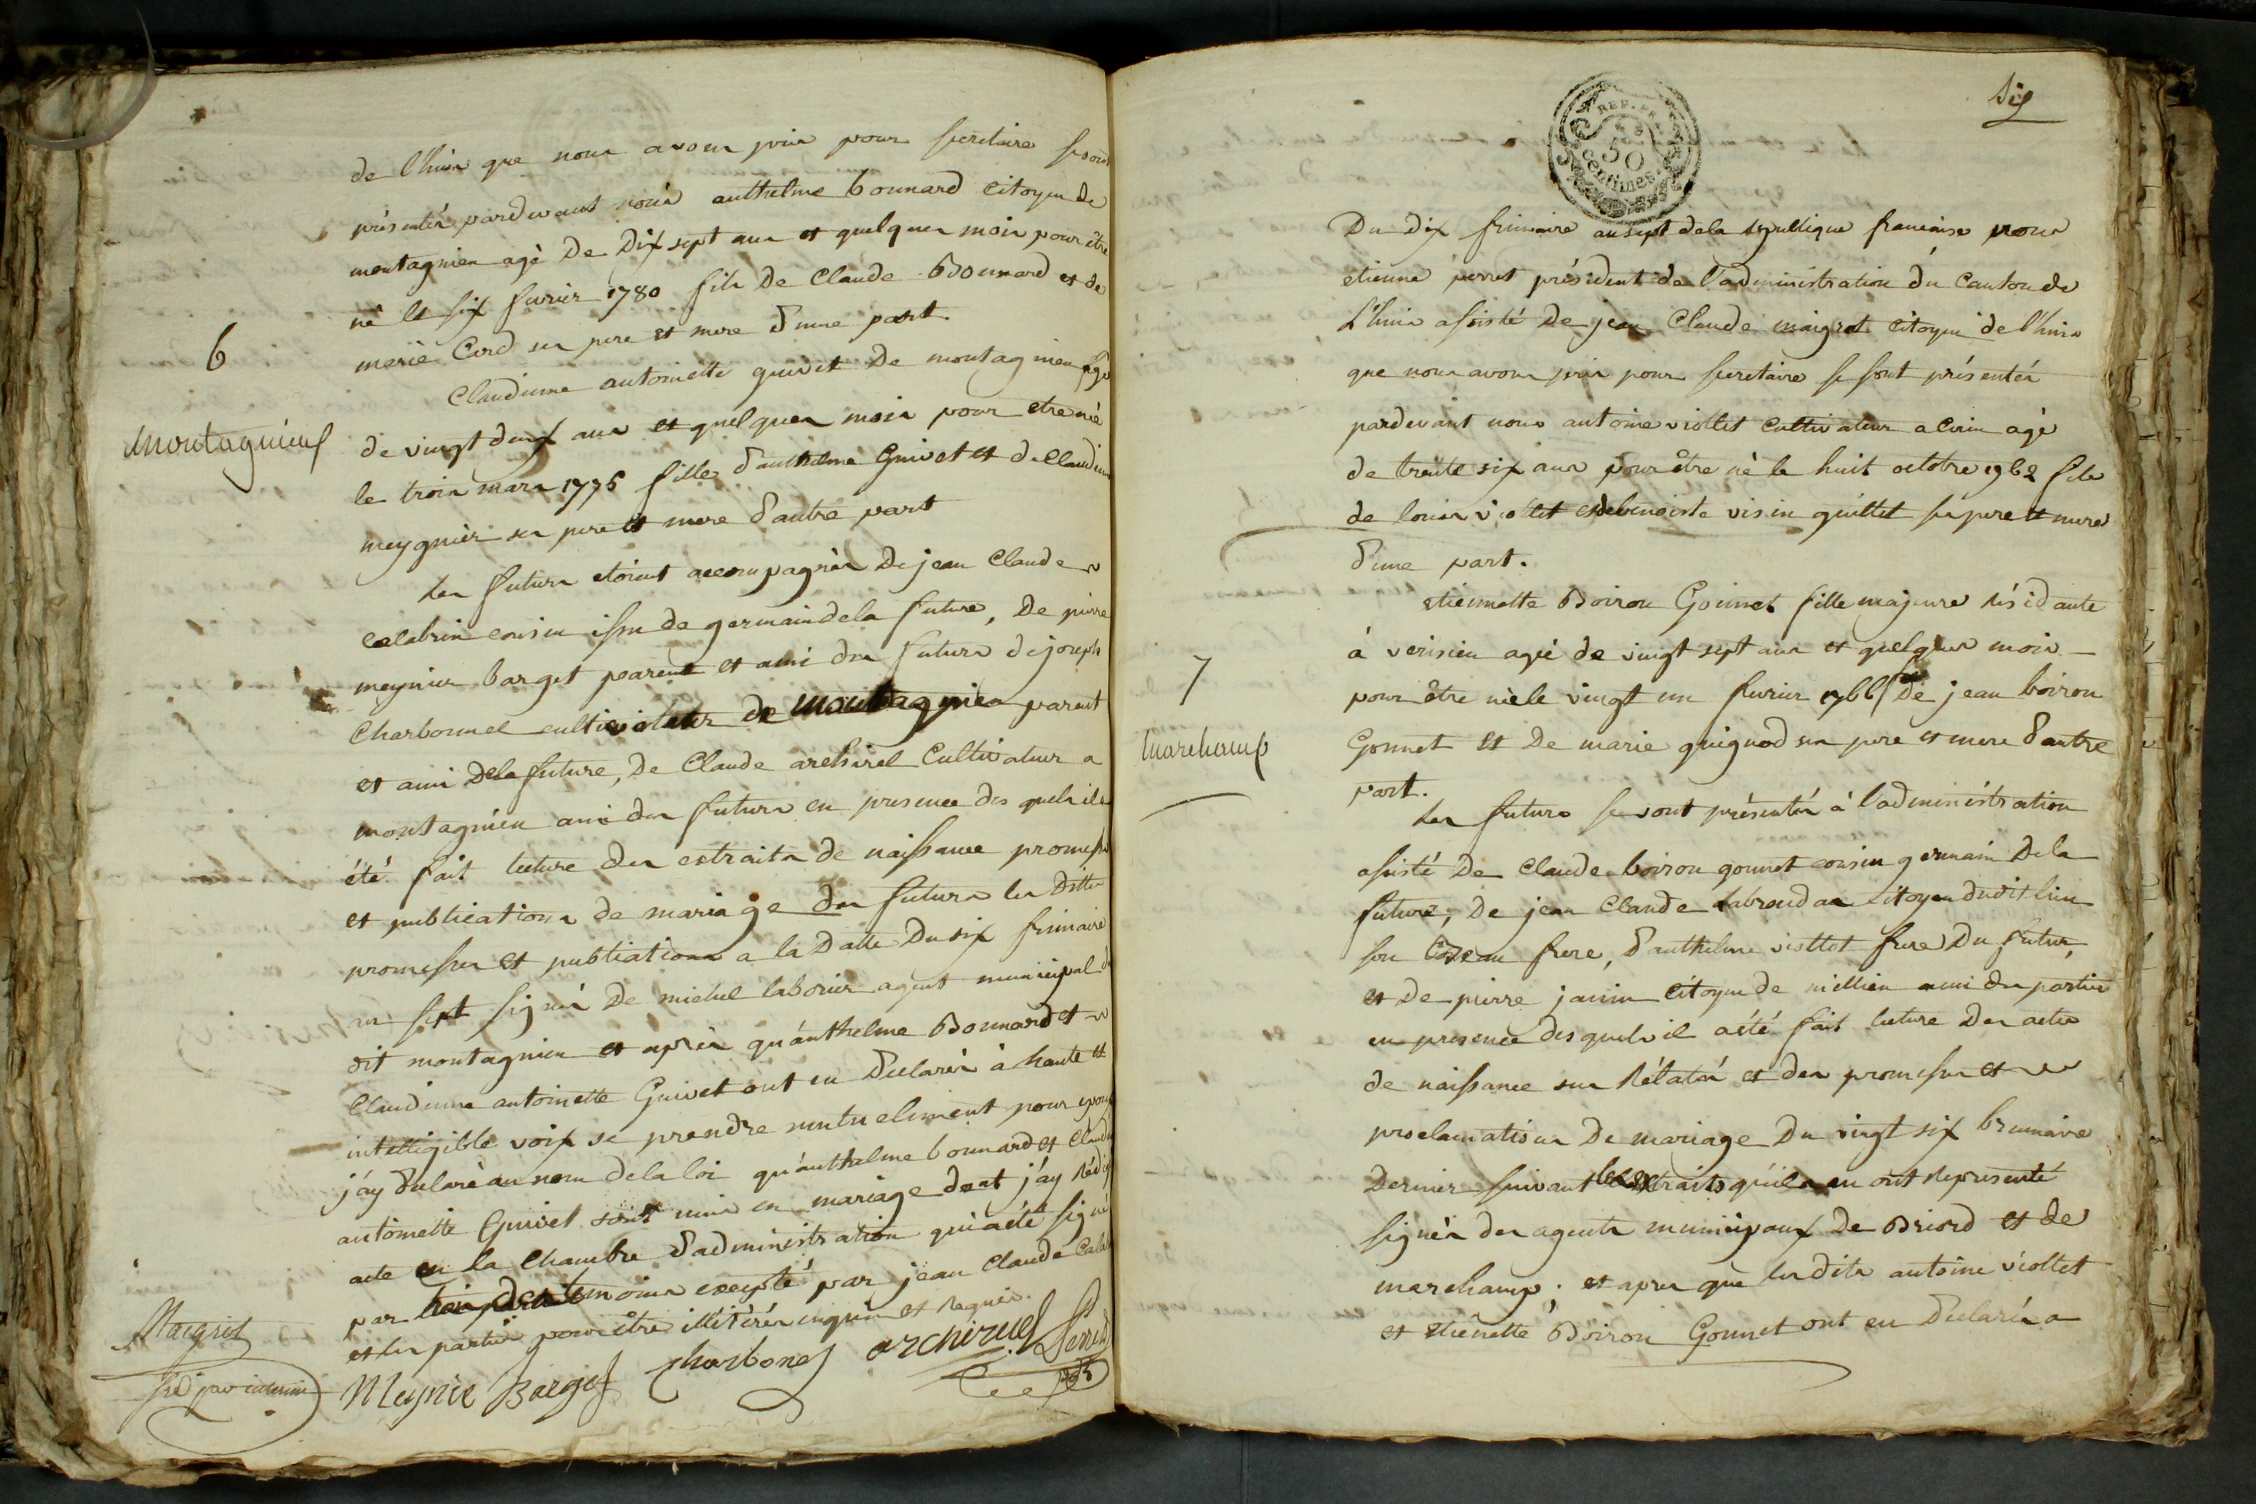 de l'huis que nous avons pris pour secretaire se sont
présentés pardevant nous anthelme bonnard citoyen de
montagnieu agé De Dix sept ans et quelques mois pour être
né le six fevrier 1780 fils De Claude Bonnard et de
marie Cord ses pere et mere d'une part.
6
Claudinne antoinette guivet De montagnieu agé
montagnieu
de vingt deux ans et quelques mois pour etre née
le trois mars 1776 fille d'anthelme Guivet et de Claudinne
meygnier ses pere et mere d'autre part
Les futurs etoient accompagnés De jean Claude
calabrin cousin issu de germain de la future, De pierre
meynier barget parent et ami des futurs de joseph
Charbonnel cultivateur de montagnieu parent
et ami De la future, De Claude archirel Cultivateur a
montagnieu ami des futurs en presence des quels il a
été fait lecture des extraits de naissance promesses
et publications de mariage des futurs les Dittes
promesses et publiations a la Datte Du six frimaire
an sept signé De michel laborier agent municipal du
dit montagnieu et après qu'anthelme Bonnard et
Claudinne antoinette Guivet ont eu Declarés à haute et
intelligible voix se prendre mutuelement pour epoux
j'ay declaré au nom de la loi qu'anthelme bonnard et Claudinne
antoinette Guivet sont unis en mariage dont j'ay Rédigé
acte en la Chambre d'administration qui a été signé
par trois des temoins excepté par jean Claude Calabrin
et les parties pour être illitérés enquis et Requis.
Maigret
Meynie Barget Charbonel archirel Perret
sec par interim
pdt
Du dix frimaire an sept de la republique francaise nous
etienne perret président de l'administration du Canton de
L'huis assisté De jean Claude maigret Citoyen de l'huis
que nous avons pris pour secretaire se sont présentés
pardevant nous antoine viollet Cultivateur a Cirin agé
de trente six ans pour être né le huit octobre 1762 fils
de louis viollet et de benoiste visin guillet ses pere et mere
d'une part.
etiennette Boiron Gonnet fille majeure Résidante
à verisieu agée de vingt sept ans et quelques mois
7
pour être née le vingt un fevrier 1766 De jean boiron
marchamp
Gonnet et De marie guignod ses pere et mere d'autre
part.
Les futurs se sont présentés à l'administration
assisté De Claude boiron gonnet cousin germain De la
future, De jean Claude Labroudas citoyen dudit lieu
son beau frere, d'anthelme viollet frere Du futur,
et De pierre janin Citoyen de millieu ami des parties
en presence des quels il a été fait lecture Des actes
de naissance sus Rélatés et des promesses et
proclamations De mariage Du vingt six brumaire
Dernier suivant les extraits qu'ils en ont Representé
signés des agents municipaux De Briord et de
marchamp; et apres que les dits antoine viollet
et etienette Boiron Gonnet ont eu Declarés a
REP. FRA.
50
centimes